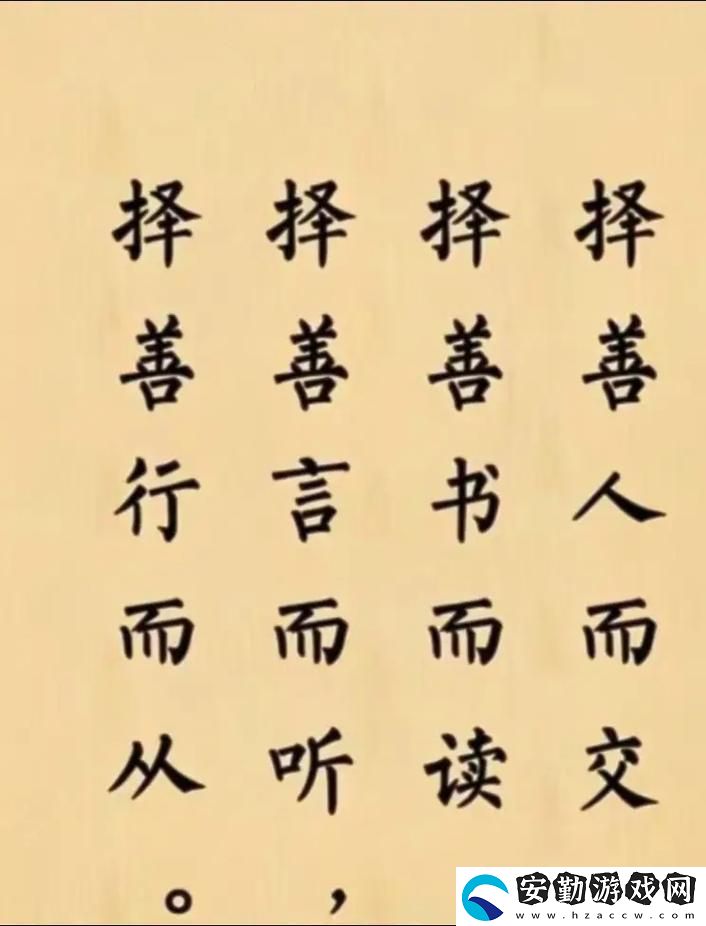 择善人而交
择善书而读
择善言而听，
择善行而从。
安勤游戏网
www.hzaccw.com